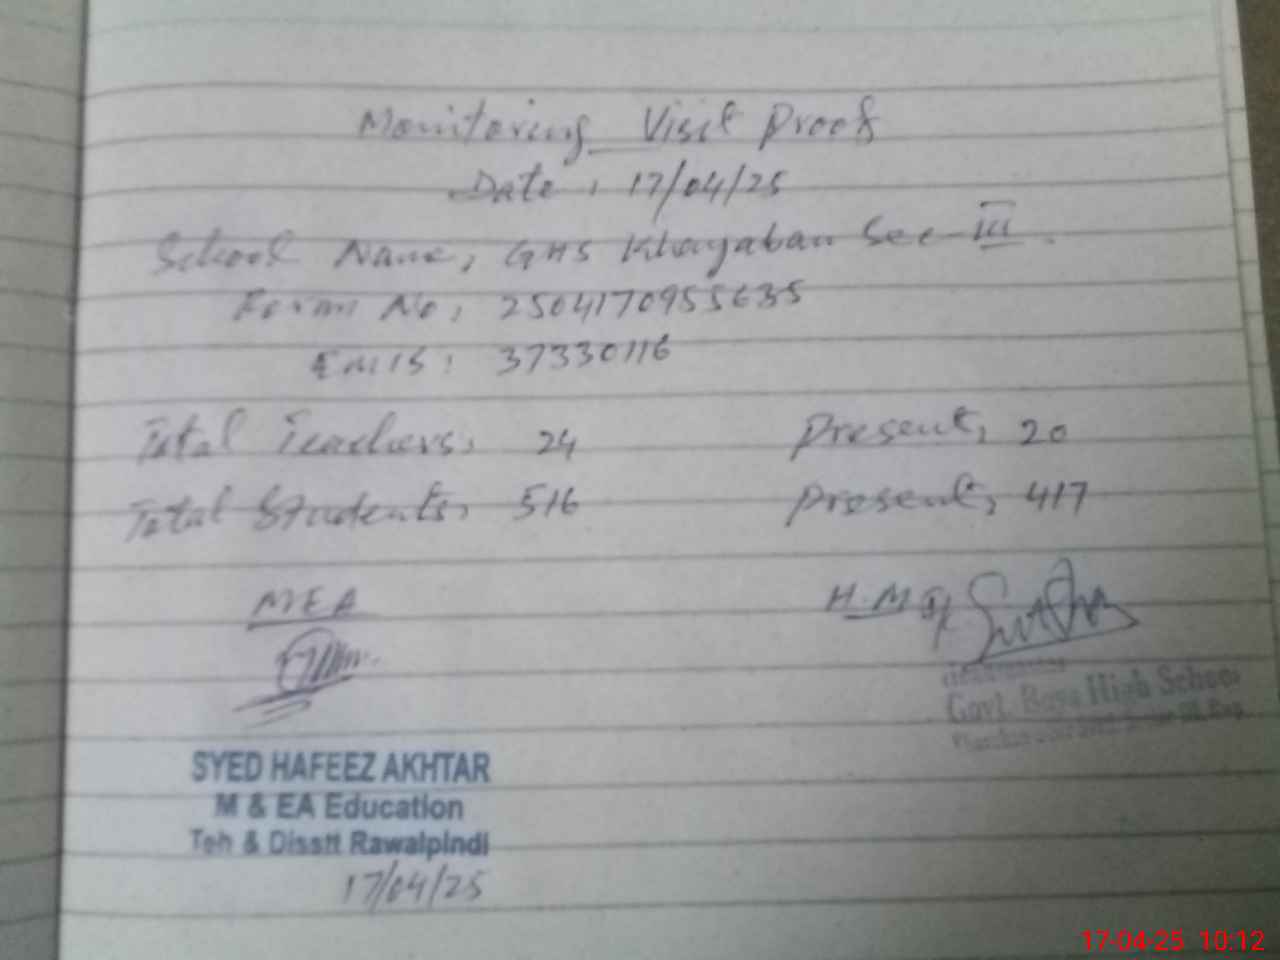 Monitoring Visit Proof
Date: 17/04/25
School Name, GHS Khayaban Sec-III.
Form No, 2504170955635
EMIS: 37330116
Total Teachers, 24 Present, 20
Total Students, 516 Present, 417
MEA H.M
SYED HAFEEZ AKHTAR
M & EA Education
Teh & Disstt Rawalpindi
17/04/25
Govt. Boys High School
17-04-25 10:12